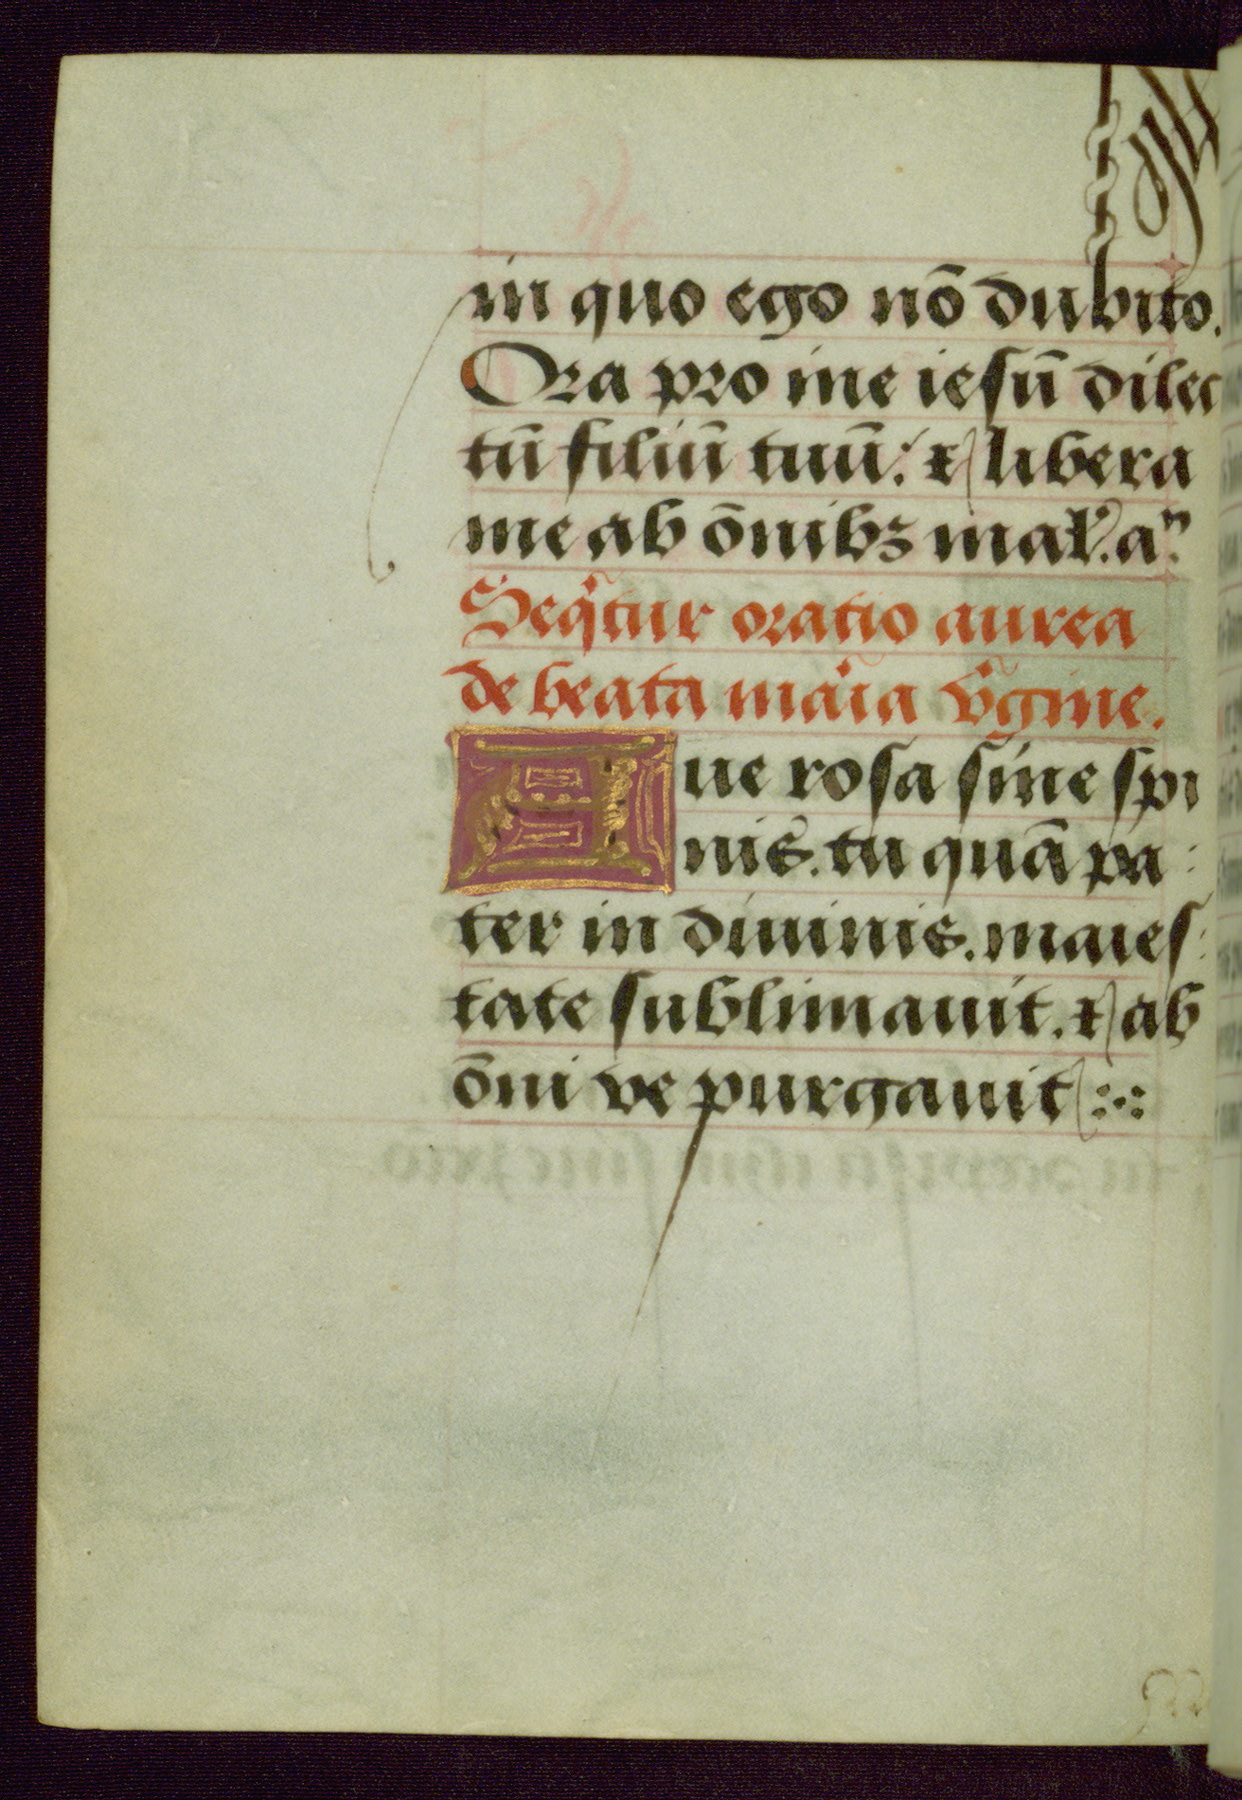 in quo ego nō dubito.
Ora pro me iesū dilec
tū filiū tuū: & libera
me ab ōnibꝫ mal'. a^n.
Seq̃tur oratio aurea
de beata maria v̓gine.
Aue rosa sine spi
nis. tu quā pa
ter in diuinis. maies
tate sublimauit. & ab
ōni ve purgauit